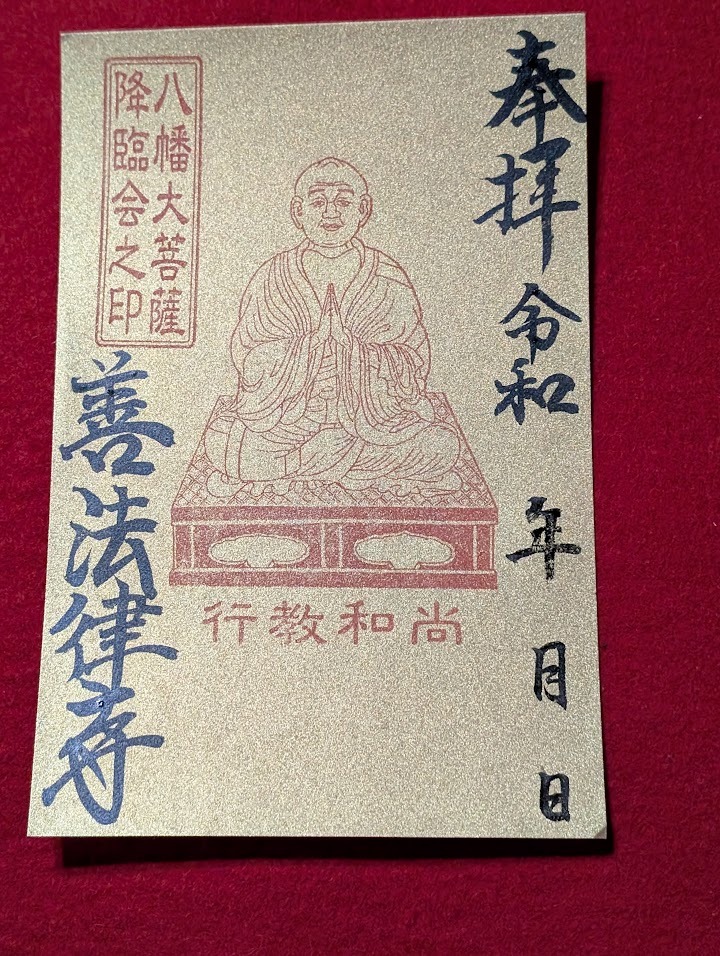 奉拝 令和 年 月 日
八幡大菩薩
降臨会之印
行教和尚
善法律寺